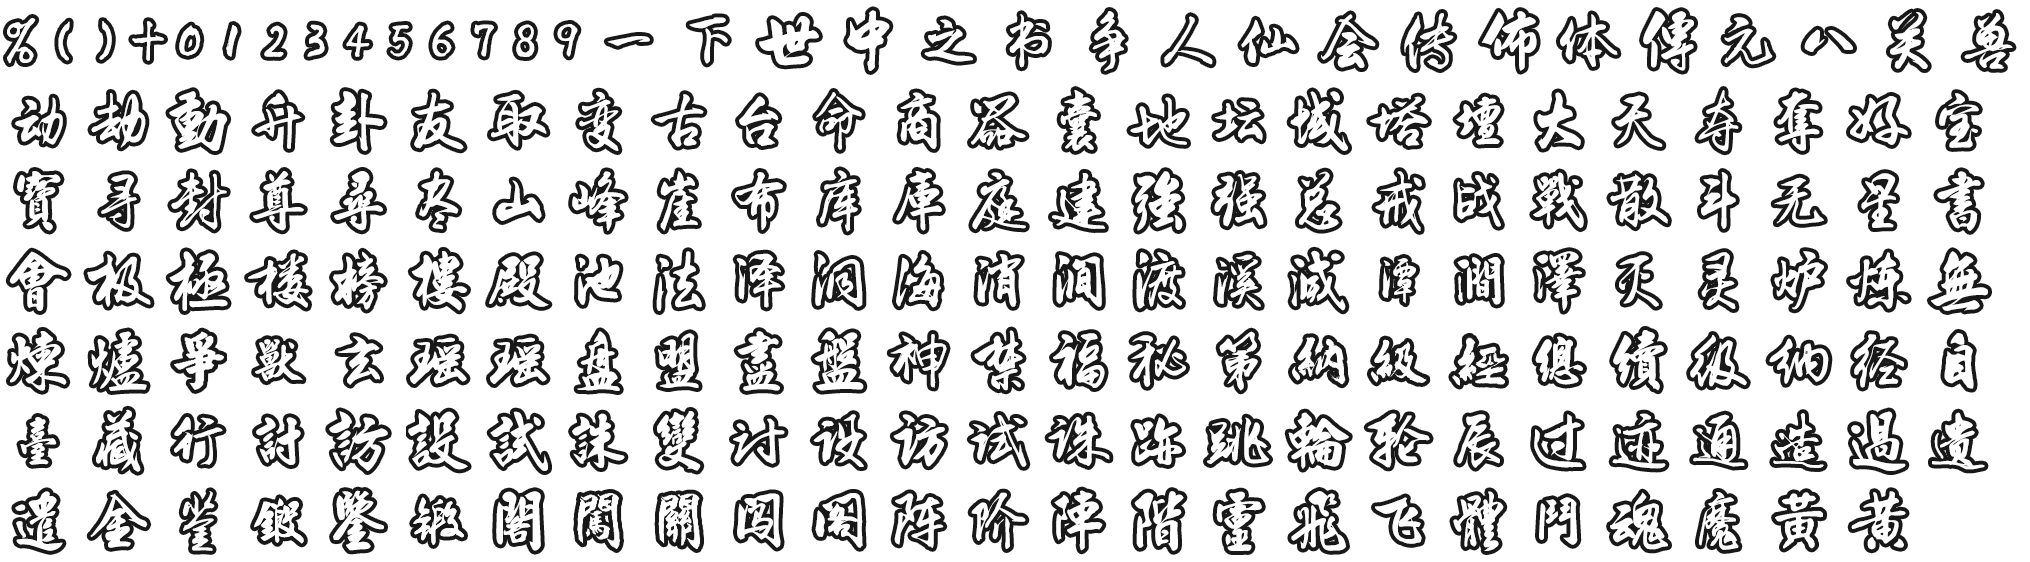 %()十0123456789一下世中之书争人仙会传佈体傳元八关兽
动劫動升卦友取变古台命商器囊地坛城塔壇大天夺奪好宝
寶寻封尊尋尽山峰崖布库庫庭建強强总戒战戰散斗无星書
會极極楼榜樓殿池法泽洞海消涧渡溪減潭澗澤灭灵炉炼無
煉爐爭獸玄瑶瑤盘盟盡盤神禁福秘第納級經總續级纳经自
臺藏行討訪設試誅變讨设访试诛跡跳輪轮辰过迹通造過遗
遣金鉴鍛鑒锻閣闖關闯阁阵阶陣階靈飛飞體鬥魂魔黃黄